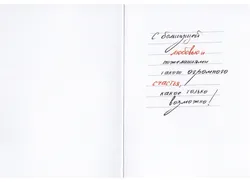 С большущей
любовью и
пожеланиями
такого огромного
счастья,
какое только
возможно!